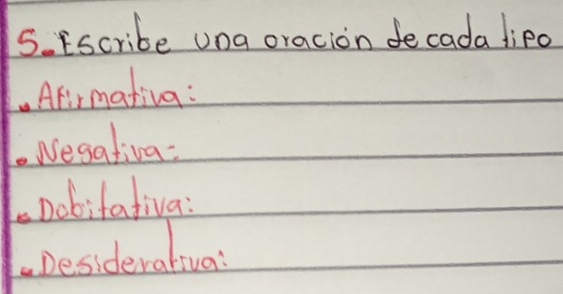 5. Escribe una oración de cada tipo
. Afirmativa:
. Negativa:
. Dobitativa:
. Desiderativa: